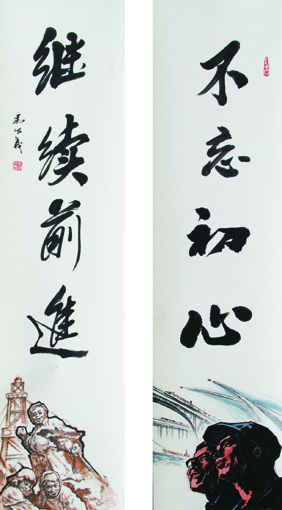 不忘初心
继续前進